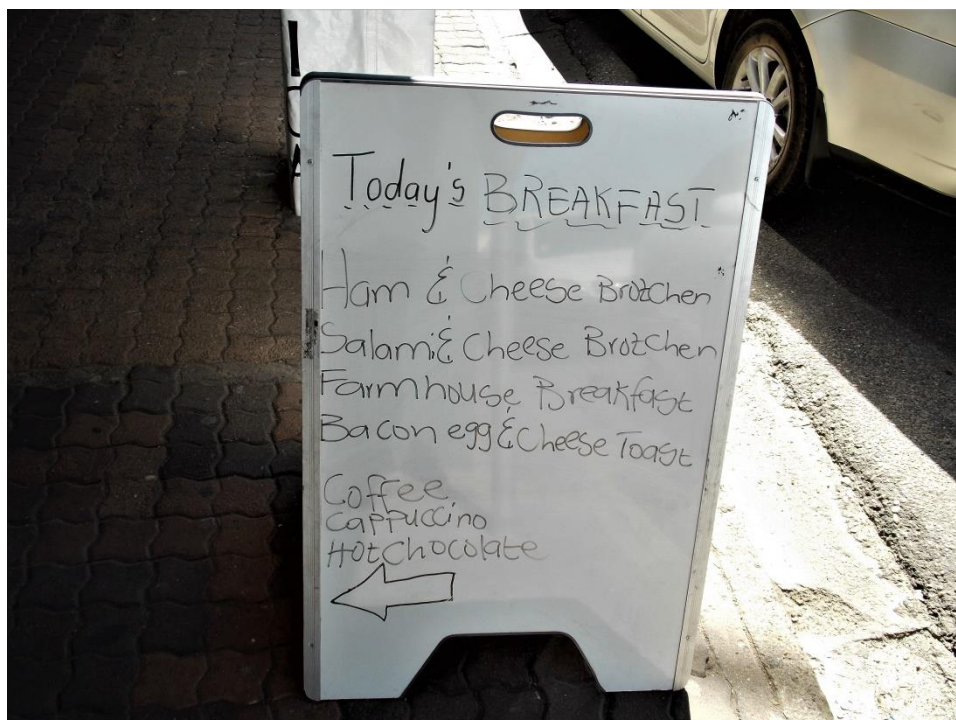 Today's BREAKFAST
Ham & Cheese Brotchen
Salami & Cheese Brotchen
Farmhouse Breakfast
Bacon egg & Cheese Toast
Coffee
Cappuccino
Hot Chocolate